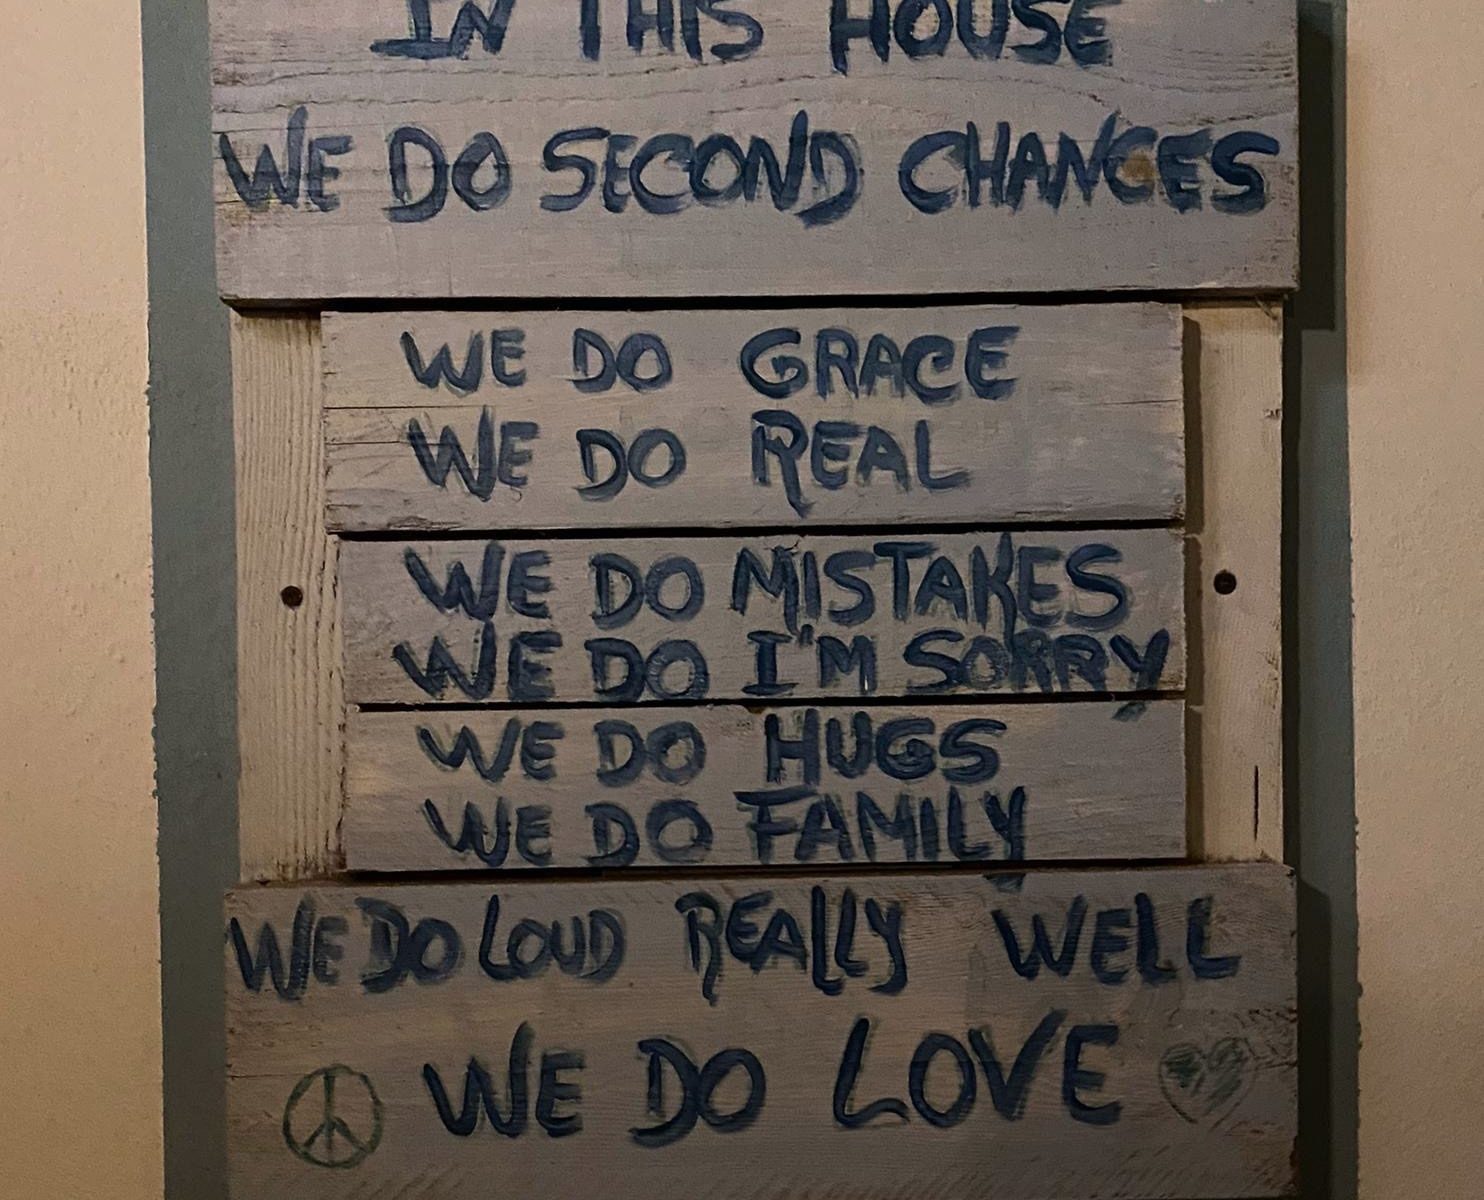 IN THIS HOUSE
WE DO SECOND CHANCES
WE DO GRACE
WE DO REAL
WE DO MISTAKES
WE DO I'M SORRY
WE DO HUGS
WE DO FAMILY
WE DO LOUD REALLY WELL
WE DO LOVE